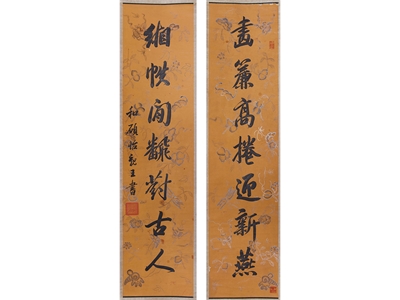 畵簾高捲迎新燕
緗帙閒翻對古人
和碩怡親王書